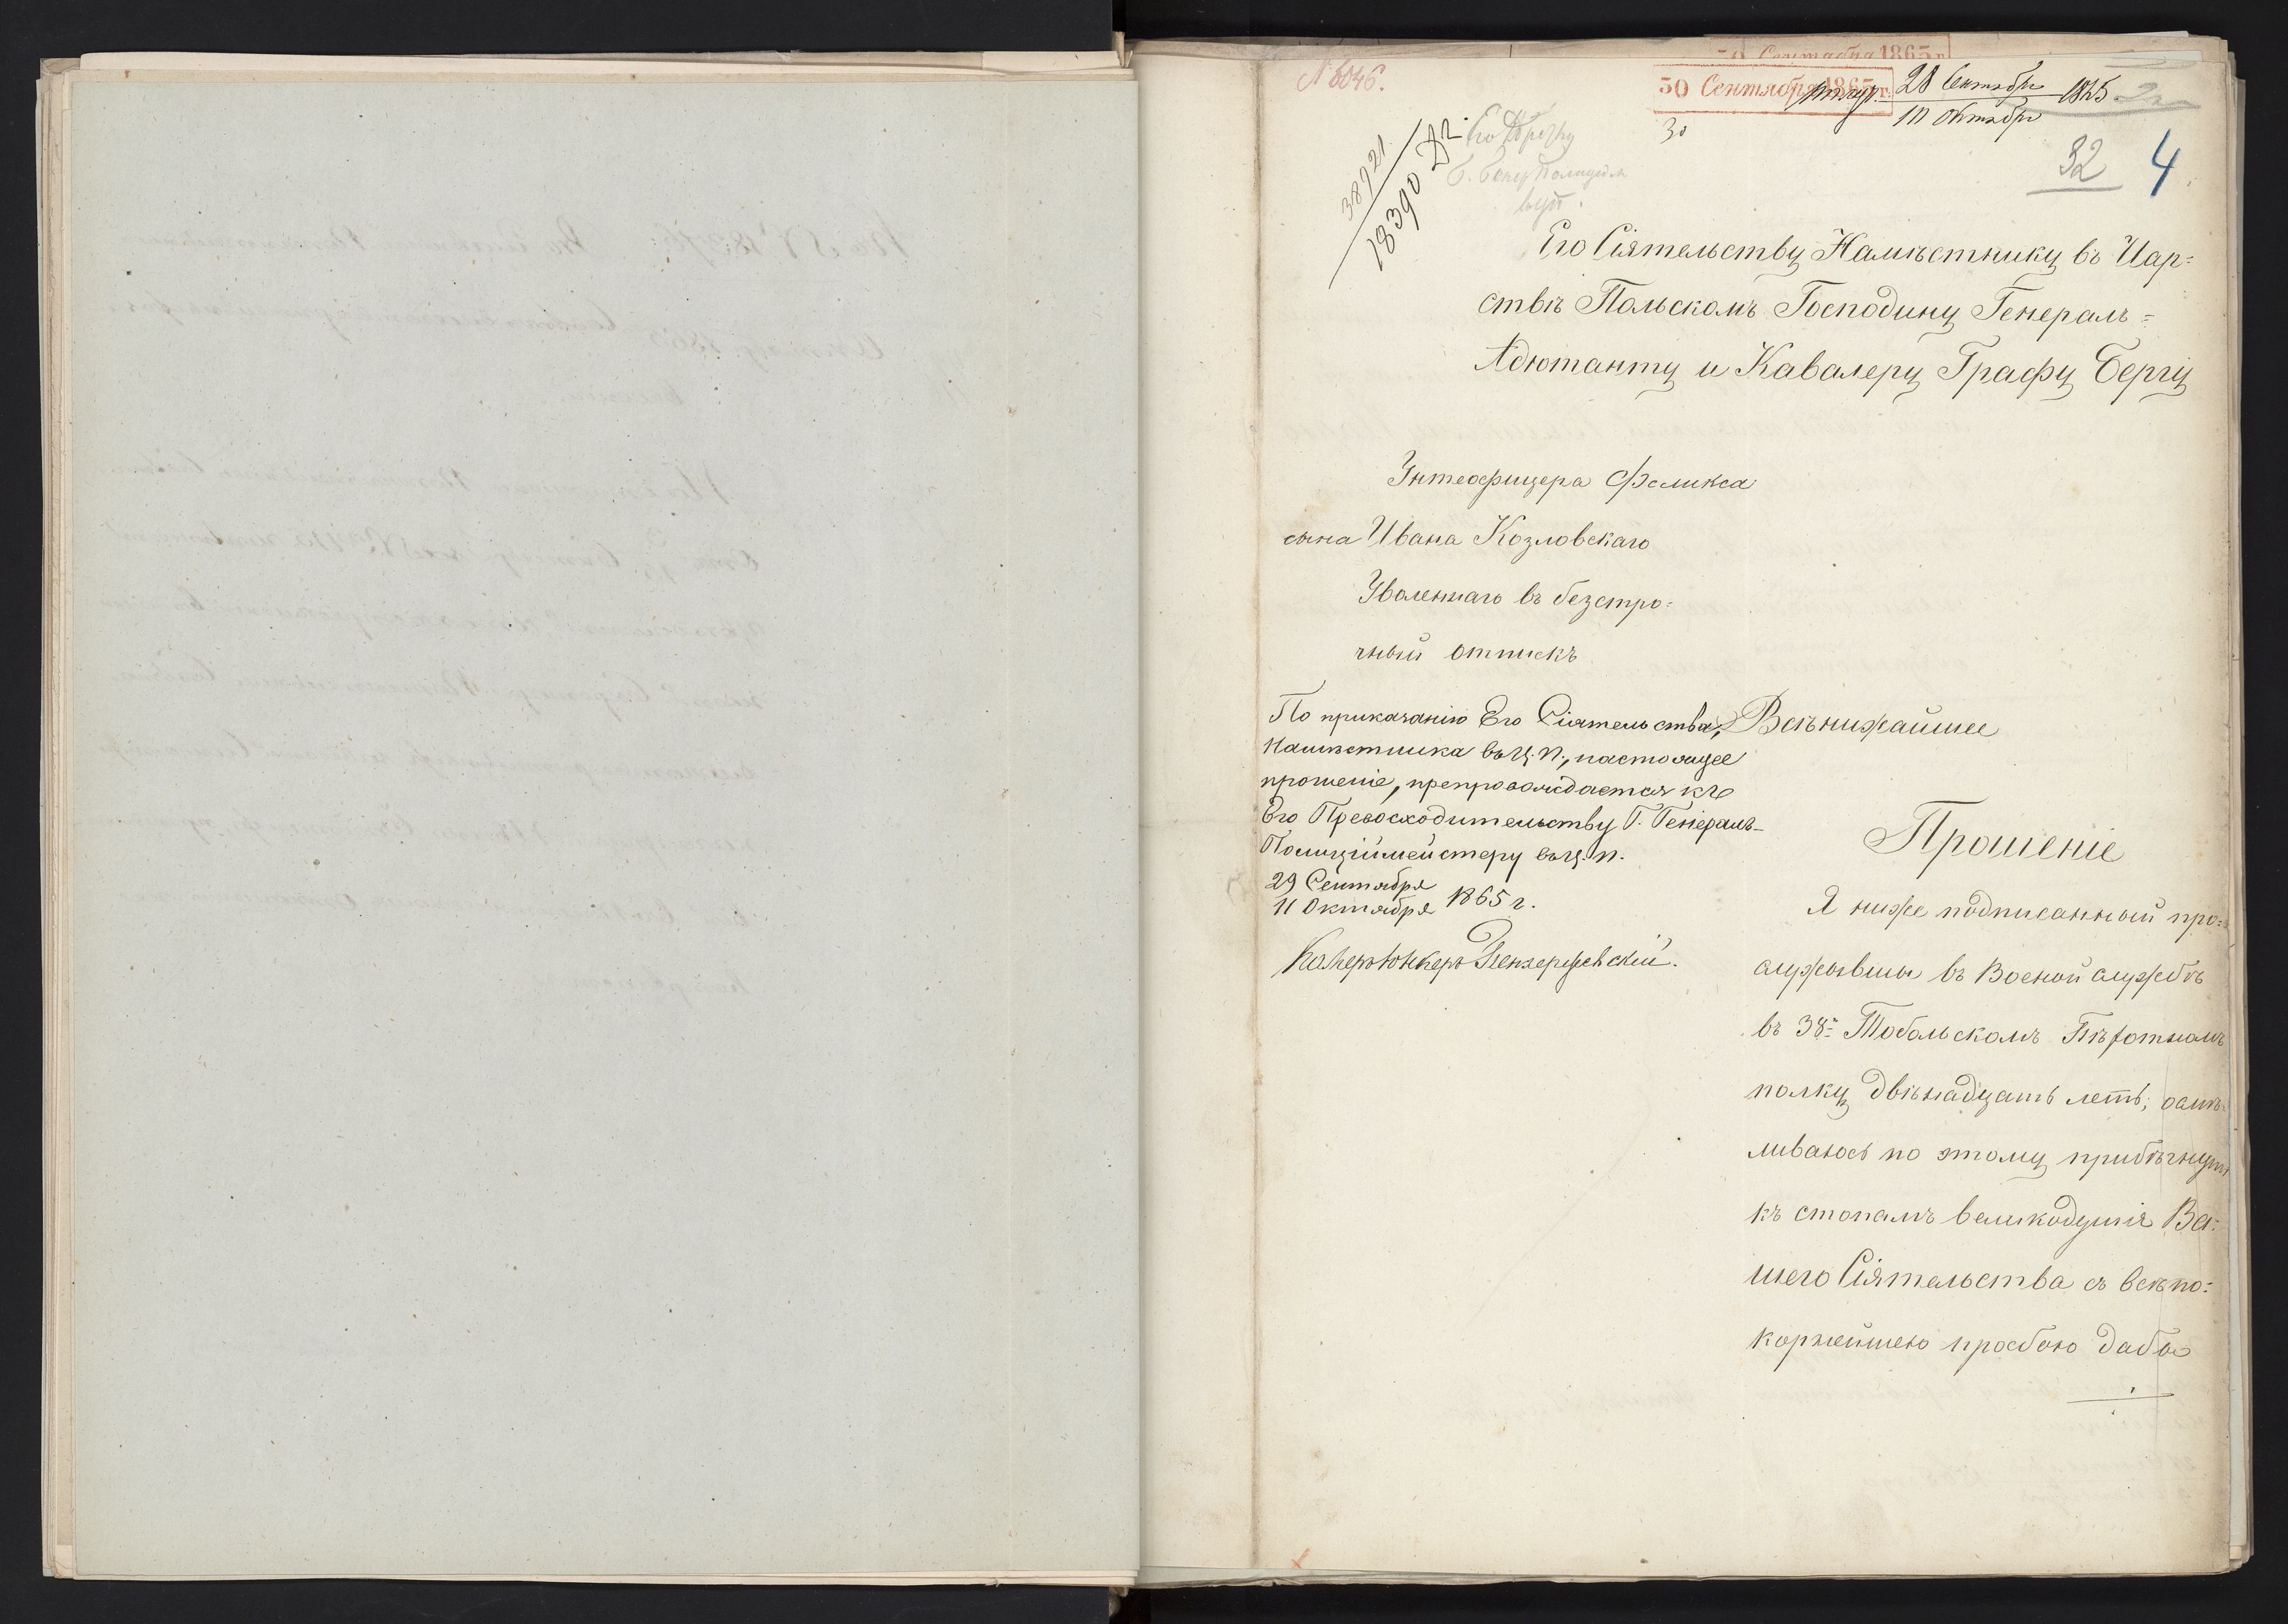 N 5046.
30 Сентября 1865 г.
28 Сентября 1865
10 Октября
30
38921
18390
32 4
Его Сіятельству Намѣстнику въ Цар=
ствѣ Польскомъ Господину Генералъ=
Адютанту и Кавалеру Графу Бергу
Унтеофицера Феликса
сына Ивана Козловскаго
Уволеннаго въ безстро=
чный отпискъ
По приказанію Его Сіятельства,
Намѣстника въ Ц. П., настоящее
прошеніе, препровождается къ
Его Превосходительству Г. Генералъ-
Полиціймейстеру въ Ц. П.
29 Сентября
11 Октября 1865 г.
Камеръ Юнкеръ
Всѣнижайшее
Прошеніе
Я ниже подписанный про=
служывшы въ Военой службѣ
въ 38= Тобольскомъ Пѣхотномъ
полку двѣнадцать летъ; осмѣ=
ливаюсь по этому прибѣгнуть
къ стопамъ великодушія Ва=
шего Сіятельства съ всѣпо=
корнейшею прозбою дабы